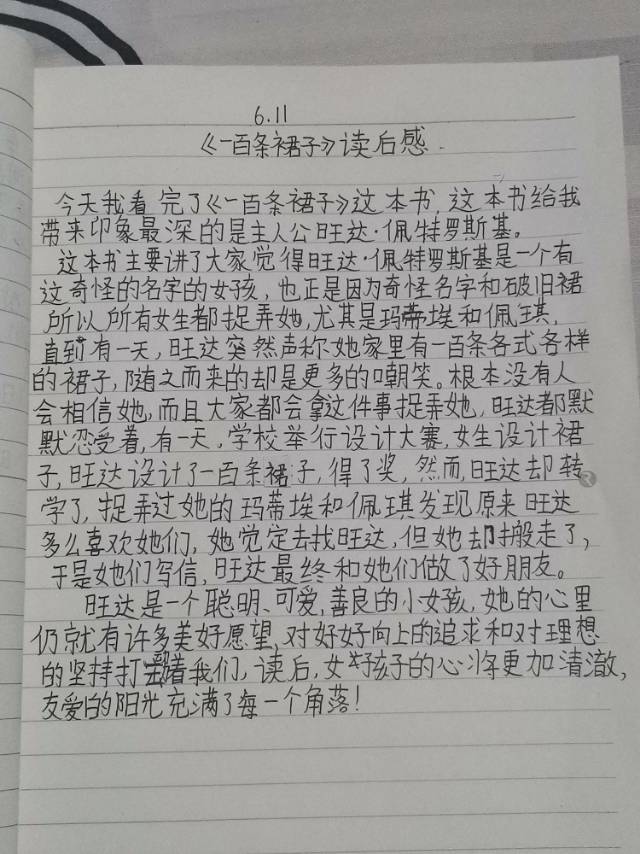 6.11
《一百条裙子》读后感.
今天我看完了《一百条裙子》这本书,这本书给我
带来印象最深的是主人公旺达·佩特罗斯基。
这本书主要讲了大家觉得旺达·佩特罗斯基是一个有
这奇怪的名字的女孩,也正是因为奇怪名字和破旧裙
所以所有女生都捉弄她,尤其是玛蒂埃和佩琪,
直到有一天,旺达突然声称她家里有一百条各式各样
的裙子,随之而来的却是更多的嘲笑。根本没有人
会相信她,而且大家都会拿这件事捉弄她,旺达都默
默忍受着,有一天,学校举行设计大赛,女生设计裙
子,旺达设计了一百条裙子,得了奖,然而,旺达却转
学了,捉弄过她的玛蒂埃和佩琪发现原来旺达
多么喜欢她们,她觉定去找旺达,但她却搬走了,
于是她们写信,旺达最终和她们做了好朋友。
旺达是一个聪明、可爱,善良的小女孩,她的心里
仍就有许多美好愿望,对好好向上的追求和对理想
的坚持打着我们,读后,女孩子的心将更加清澈,
友爱的阳光充满了每一个角落!